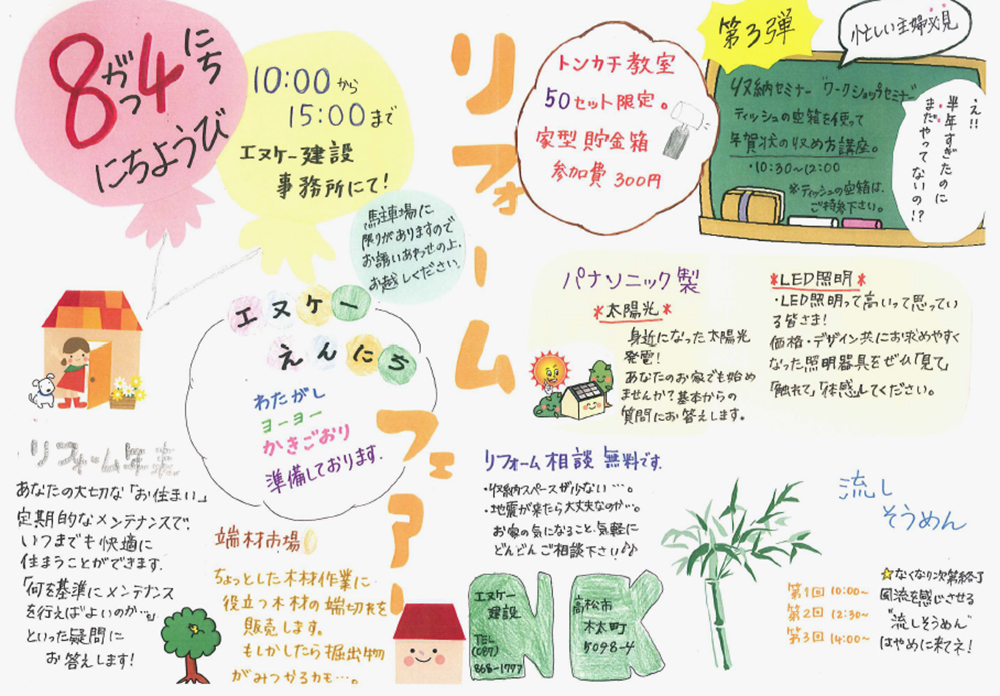 8がつ4にち
にちようび
10:00から
15:00まで
エヌケー建設
事務所にて!
駐車場に
限りがありますので
お誘いあわせの上、
お越しください。
リフォームフェアー
トンカチ教室
50セット限定。
家型貯金箱
参加費300円
第3弾
忙しい主婦必見
収納セミナー ワークショップセミナー
ティッシュの空箱を使って
年賀状の収め方講座。
・10:30~12:00
※ティッシュの空箱は、
ご持参下さい。
え!!
半年すぎたのに
まだやってないの!?
エヌケー
えんにち
わたがし
ヨーヨー
かきごおり
準備しております。
パナソニック製
*太陽光*
身近になった太陽光
発電!
あなたのお家でも始め
ませんか?基本からの
質問にお答えします。
*LED照明*
・LED照明って高いって思ってい
る皆さま!
価格・デザイン共にお求めやすく
なった照明器具をぜひ「見て」
「触れて」「体感」してください。
リフォーム年表
あなたの大切な「お住まい」
定期的なメンテナンスで、
いつまでも快適に
住まうことができます。
「何を基準にメンテナンス
を行えばよいのか…」
といった疑問に
お答えします!
端材市場
ちょっとした木材作業に
役立つ木材の端切れを
販売します。
もしかしたら掘出物
がみつかるカモ…。
リフォーム相談 無料です。
・収納スペースが少ない…。
・地震が来たら大丈夫なのか…。
お家の気になること、気軽に
どんどんご相談下さい♪♪
NK
エヌケー
建設
TEL
(087)
868-1777
高松市
林町
5098-4
流し
そうめん
第1回 10:00~
第2回 12:30~
第3回 14:00~
☆なくなり次第終了
風流を感じさせる
"流しそうめん"
はやめに来てネ!